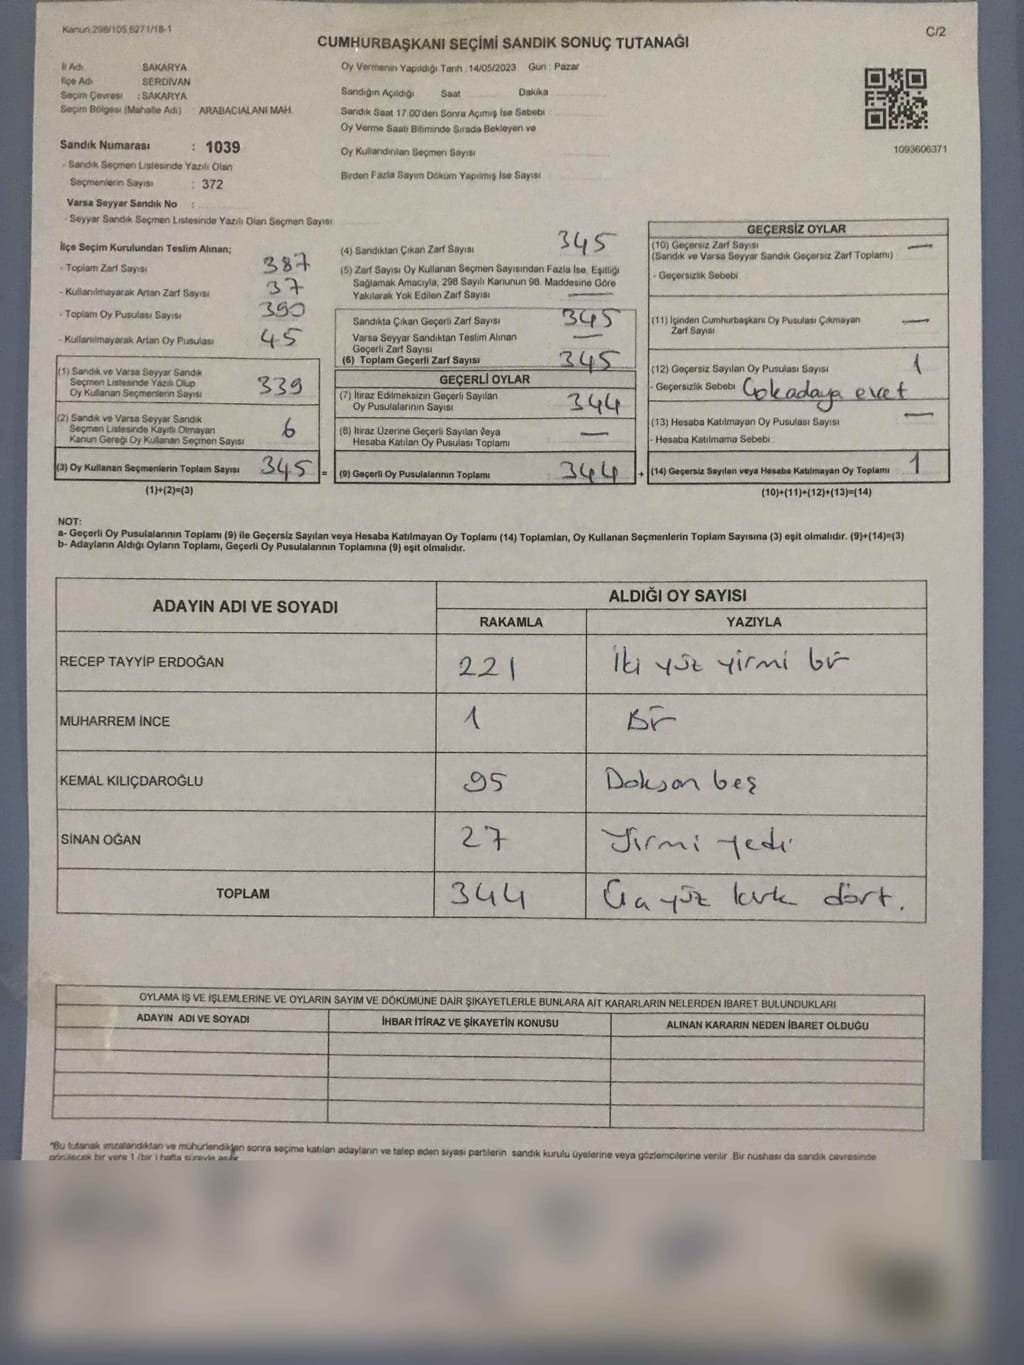 Kanun.298/105,6271/18-1
C/2
CUMHURBAŞKANI SEÇİMİ SANDIK SONUÇ TUTANAĞI
İl Adı : SAKARYA
İlçe Adı : SERDİVAN
Seçim Çevresi : SAKARYA
Seçim Bölgesi (Mahalle Adı) ARABACIALANI MAH.
Sandık Numarası : 1039
- Sandık Seçmen Listesinde Yazılı Olan
Seçmenlerin Sayısı : 372
Varsa Seyyar Sandık No :
- Seyyar Sandık Seçmen Listesinde Yazılı Olan Seçmen Sayısı
Oy Vermenin Yapıldığı Tarih :14/05/2023 Gün : Pazar
Sandığın Açıldığı Saat Dakika
Sandık Saat 17.00'den Sonra Açımış İse Sebebi
Oy Verme Saati Bitiminde Sırada Bekleyen ve
Oy Kullandırılan Seçmen Sayısı
Birden Fazla Sayım Döküm Yapılmış İse Sayısı
1093606371
İlçe Seçim Kurulundan Teslim Alınan;
- Toplam Zarf Sayısı 387
- Kullanılmayarak Artan Zarf Sayısı 37
- Toplam Oy Pusulası Sayısı 390
- Kullanılmayarak Artan Oy Pusulası 45
(1) Sandık ve Varsa Seyyar Sandık
Seçmen Listesinde Yazılı Olup
Oy Kullanan Seçmenlerin Sayısı 339
(2) Sandık ve Varsa Seyyar Sandık
Seçmen Listesinde Kayıtlı Olmayan
Kanun Gereği Oy Kullanan Seçmen Sayısı 6
(3) Oy Kullanan Seçmenlerin Toplam Sayısı 345 =
(1)+(2)=(3)
(4) Sandıktan Çıkan Zarf Sayısı 345
(5) Zarf Sayısı Oy Kullanan Seçmen Sayısından Fazla İse, Eşitliği
Sağlamak Amacıyla, 298 Sayılı Kanunun 98. Maddesine Göre
Yakılarak Yok Edilen Zarf Sayısı —
Sandıkta Çıkan Geçerli Zarf Sayısı 345
Varsa Seyyar Sandıktan Teslim Alınan
Geçerli Zarf Sayısı —
(6) Toplam Geçerli Zarf Sayısı 345
GEÇERLİ OYLAR
(7) İtiraz Edilmeksizin Geçerli Sayılan
Oy Pusulalarının Sayısı 344
(8) İtiraz Üzerine Geçerli Sayılan veya
Hesaba Katılan Oy Pusulası Toplamı —
(9) Geçerli Oy Pusulalarının Toplamı 344 +
GEÇERSİZ OYLAR
(10) Geçersiz Zarf Sayısı —
(Sandık ve Varsa Seyyar Sandık Geçersiz Zarf Toplamı)
- Geçersizlik Sebebi
(11) İçinden Cumhurbaşkanı Oy Pusulası Çıkmayan
Zarf Sayısı —
(12) Geçersiz Sayılan Oy Pusulası Sayısı 1
- Geçersizlik Sebebi Çok adaya evet
(13) Hesaba Katılmayan Oy Pusulası Sayısı —
- Hesaba Katılmama Sebebi
(14) Geçersiz Sayılan veya Hesaba Katılmayan Oy Toplamı 1
(10)+(11)+(12)+(13)=(14)
NOT:
a- Geçerli Oy Pusulalarının Toplamı (9) ile Geçersiz Sayılan veya Hesaba Katılmayan Oy Toplamı (14) Toplamları, Oy Kullanan Seçmenlerin Toplam Sayısına (3) eşit olmalıdır. (9)+(14)=(3)
b- Adayların Aldığı Oyların Toplamı, Geçerli Oy Pusulalarının Toplamına (9) eşit olmalıdır.
ADAYIN ADI VE SOYADI ALDIĞI OY SAYISI
RAKAMLA YAZIYLA
RECEP TAYYİP ERDOĞAN 221 İki yüz yirmi bir
MUHARREM İNCE 1 Bir
KEMAL KILIÇDAROĞLU 95 Doksan beş
SİNAN OĞAN 27 Yirmi yedi
TOPLAM 344 Üç yüz kırk dört.
OYLAMA İŞ VE İŞLEMLERİNE VE OYLARIN SAYIM VE DÖKÜMÜNE DAİR ŞİKAYETLERLE BUNLARA AİT KARARLARIN NELERDEN İBARET BULUNDUKLARI
ADAYIN ADI VE SOYADI İHBAR İTİRAZ VE ŞİKAYETİN KONUSU ALINAN KARARIN NEDEN İBARET OLDUĞU
*Bu tutanak imzalandıktan ve mühürlendikten sonra seçime katılan adayların ve talep eden siyasi partilerin sandık kurulu üyelerine veya gözlemcilerine verilir. Bir nüshası da sandık çevresinde
görülecek bir yere 1 (bir) hafta süreyle asılır.